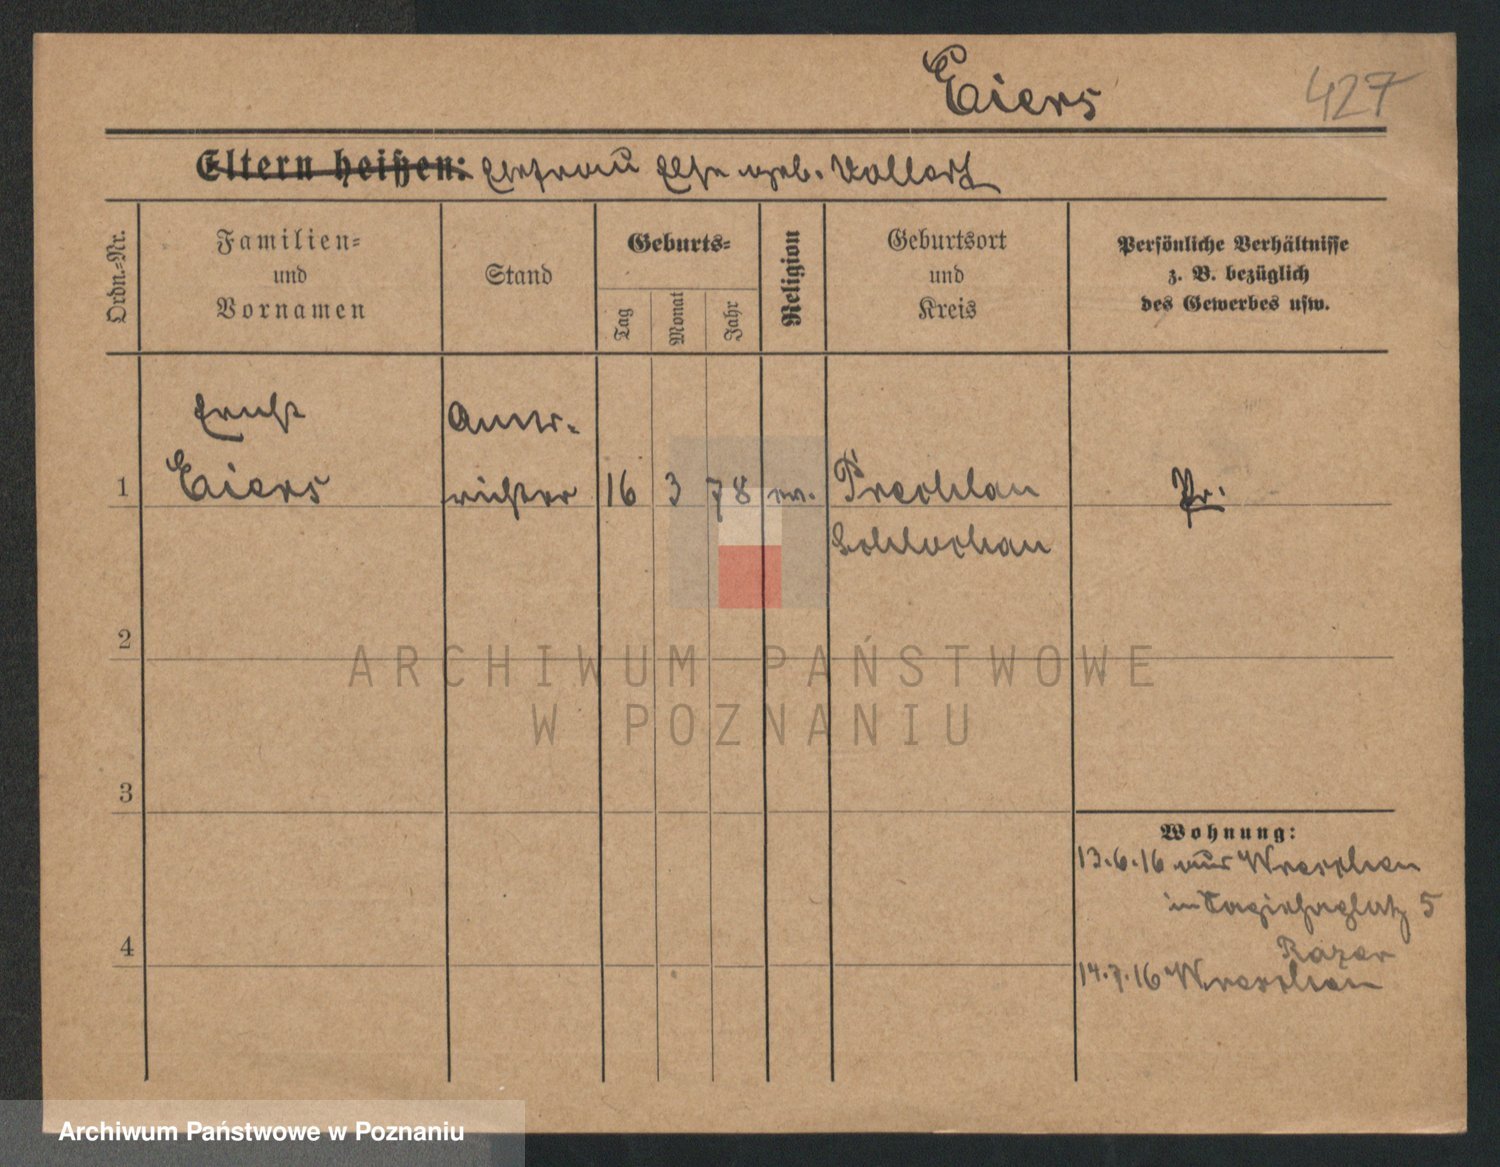 Eiers
427
Eltern heißen: Ehefrau Else geb. Vollert
Ordn.-Nr.
Familien-
und
Vornamen
Stand
Geburts-
Tag
Monat
Jahr
Religion
Geburtsort
und
Kreis
Persönliche Verhältnisse
z. B. bezüglich
des Gewerbes usw.
Ernst
Eiers
Amts-
richter
1
16
3
78
ev.
Prechlau
Schlochau
Pr.
2
ARCHIWUM PAŃSTWOWE
W POZNANIU
3
Wohnung:
13.6.16 aus Wreschen
5
4
14.7.16 Wreschen
Archiwum Państwowe w Poznaniu